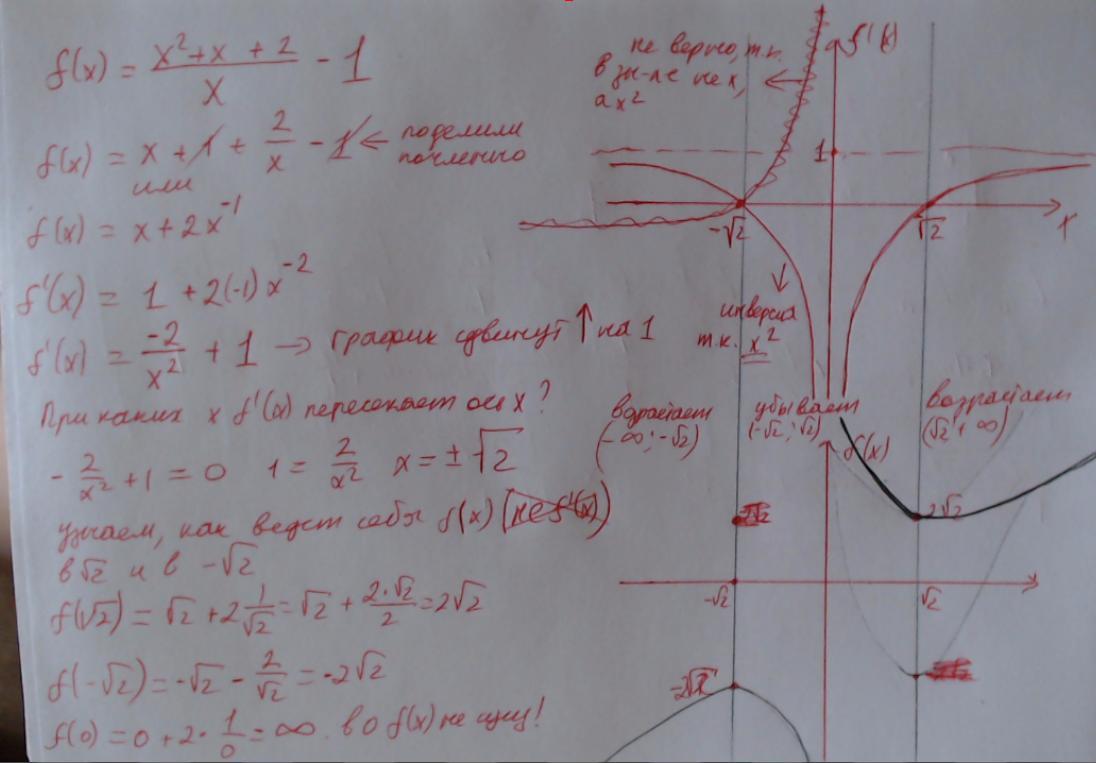 f(x) = (x²+x+2)/x - 1
f(x) = x + 1 + 2/x - 1 ← поделили
почленно
или
f(x) = x + 2x⁻¹
f'(x) = 1 + 2(-1)x⁻²
f'(x) = -2/x² + 1 → график сдвинут ↑ на 1
При каких x f'(x) пересекает ось x?
- 2/x² + 1 = 0 1 = 2/x² x = ±√2
узнаем, как ведет себя f(x) (не f'(x))
в √2 и в -√2
f(√2) = √2 + 2 1/√2 = √2 + 2·√2/2 = 2√2
f(-√2) = -√2 - 2/√2 = -2√2
f(0) = 0 + 2·1/0 = ∞. в 0 f(x) не ищу!
не верно, т.к.
в зн-ле не x,
а x²
f'(x)
1
-√2
√2
X
инверсия
т.к. x²
возрастает
(-∞; -√2)
убывает
(-√2; √2)
возрастает
(√2; ∞)
f(x)
2√2
-√2
√2
-2√2